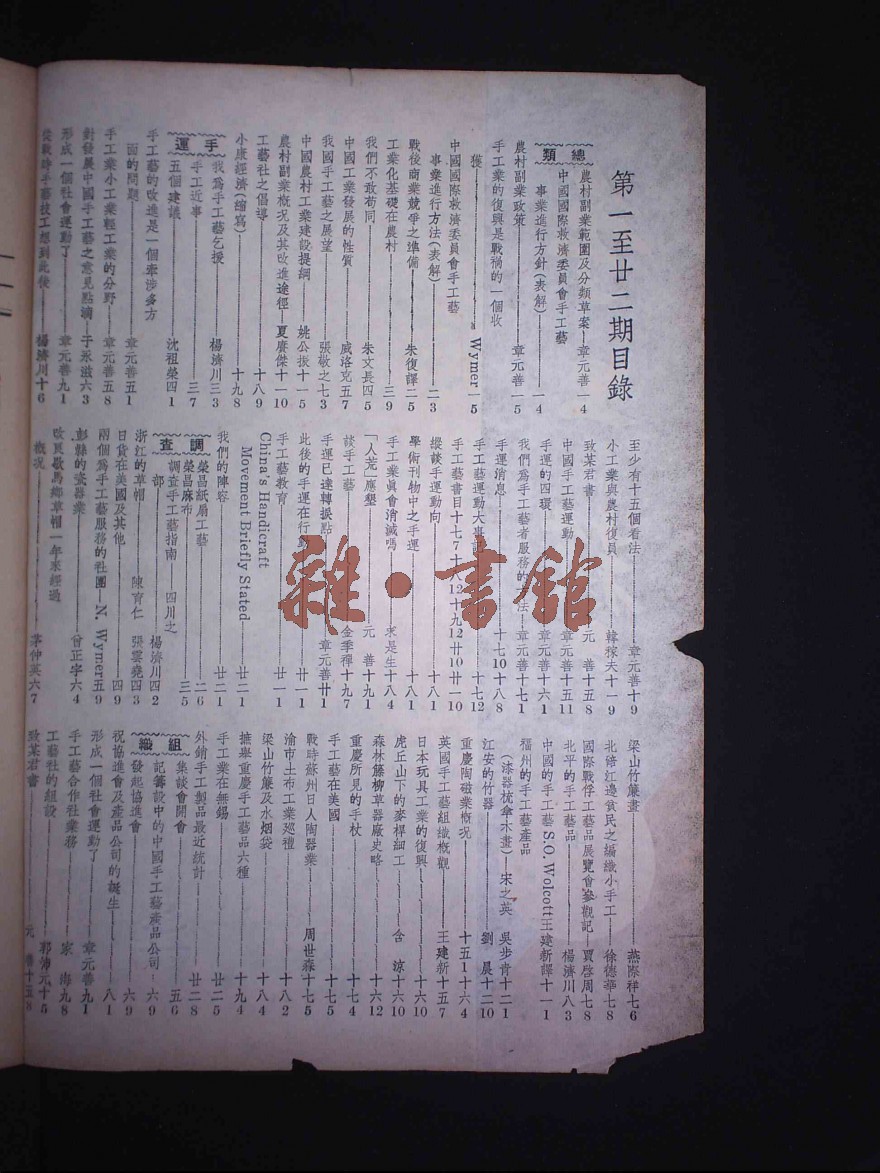 第一至廿二期目錄
總類
農村副業範圍及分類草案——章元善一4
中國國際救濟委員會手工藝
事業進行方針(表解)——一4
農村副業政策——章元善一5
手工業的復興是戰禍的一個收
穫——Wymer一5
中國國際救濟委員會手工藝
事業進行方法(表解)——二3
戰後商業競爭之準備——朱復譯二5
工業化基礎在農村——三9
我們不敢苟同——朱文長四5
中國工業發展的性質——威洛克五7
我國手工藝之展望——張敬之七3
中國農村工業建設提綱——姚公振十一5
農村副業概況及其改進途徑—夏賡傑十一10
工藝社之倡導——十八9
小康經濟(縮寫)——十九8
手運
我為手工藝乞援——楊濟川三3
手工近事——三7
五個建議——沈祖榮四1
手工藝的改進是一個牽涉多方
面的問題——章元善五1
手工業小工業輕工業的分野——章元善五8
對發展中國手工藝之意見點滴—于永滋六3
形成一個社會運動了——章元善九1
從戰時手藝技工想到此後——楊濟川十6
至少有十五個看法——章元善十9
小工業與農村復員——韓稼夫十一9
致某君書——元 善十五8
中國手工藝運動——章元善十五11
手運的四環——章元善十六1
我們為手工藝者服務的方法—章元善十七1
手運消息——十七10十八8
手工藝運動大事記——十七12
手工藝書目十七7十八12十九12廿10廿一10
縱談手運動向——十八1
學術刊物中之手運——十八1
手工業真會消滅嗎——求是生十八4
「人荒」應墾——元 善十九1
談手工藝——金季禪十九7
手運已達轉捩點——章元善廿1
此後的手運在行動——廿一1
手工藝教育——廿一1
China's Handicraft
Movement Briefly Stated——廿二1
我們的陣容——廿二1
調查
榮昌紙扇工藝——二6
榮昌麻布——三5
調查手工藝指南 四川之
部——楊濟川四2
浙江的草帽——陳育仁 張雲堯四3
日貨在美國及其他——四9
兩個為手工藝服務的社團—N. Wymer五9
彭縣的瓷器業——曾正字六4
改良歇馬鄉草帽一年來經過
概況——茅仲英六7
梁山竹簾畫——燕際祥七6
北碚江邊貧民之編織小手工——徐德華七8
國際戰俘工藝品展覽會參觀記—賈啓周七8
北平的手工藝品——楊濟川八3
中國的手工藝S.O.Wolcott王建新譯十一1
福州的手工藝產品
(漆器枕傘木畫) 宋之英 吳步青十二1
江安的竹器——劉 晨十二10
重慶陶磁業概況——十五1十六4
英國手工藝組織概觀——王建新十五7
日本玩具工業的復興——十六10
虎丘山下的麥桿細工——含 涼十六10
森林籐柳草器廠史略——十六12
重慶所見的手杖——十七4
手工藝在美國——十七5
戰時蘇州日人陶器業——周世森十七5
渝市土布工業巡禮——十八2
梁山竹簾及水烟袋——十八4
撫舉重慶手工藝品六種——十九4
手工業在無錫——廿二5
外銷手工製品最近統計——廿二8
組織
集談會開會——五6
記籌設中的中國手工藝產品公司—六9
發起協進會——六9
祝協進會及產品公司的誕生——八1
形成一個社會運動了——章元善九1
手工藝合作社業務——家 海九8
工藝社的組設——郭佈元十5
致某君書——元 善十五8
雜·書館